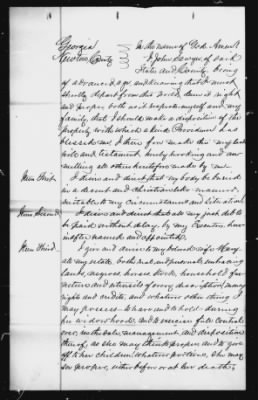 Georgia
Newton County
In the name of God Amen
I John Sawyer of said
State and County being
of advanced age and knowing that I must
shortly depart from this world, deem it right
and proper both as it respects myself and my
family, that I should make a disposition of the
property with which a kind Providence has
blessed me I therefore make this my last
will and testament hereby revoking and an-
nulling all others heretofore made by me.
Item First.
I desire and direct that my body be buried
in a decent and Christianlike manner
suitable to my circumstances and situation
Item Second
I desire and direct that all my just debts
be paid without delay by my Executors here-
inafter named and appointed.
Item Third.
I give and devise to my beloved wife Mary
all my estate both real and personal embracing
lands, negroes, horses stock, household fur-
niture and utensils of every description, money
rights and credits, and whatever other thing I
may possess to have and to hold during
her widowhood, and to exercise full control
over, in the sale management and disposition
thereof, as she may think proper and to give
off to her children whatever portions she may
see proper, either before or at her death